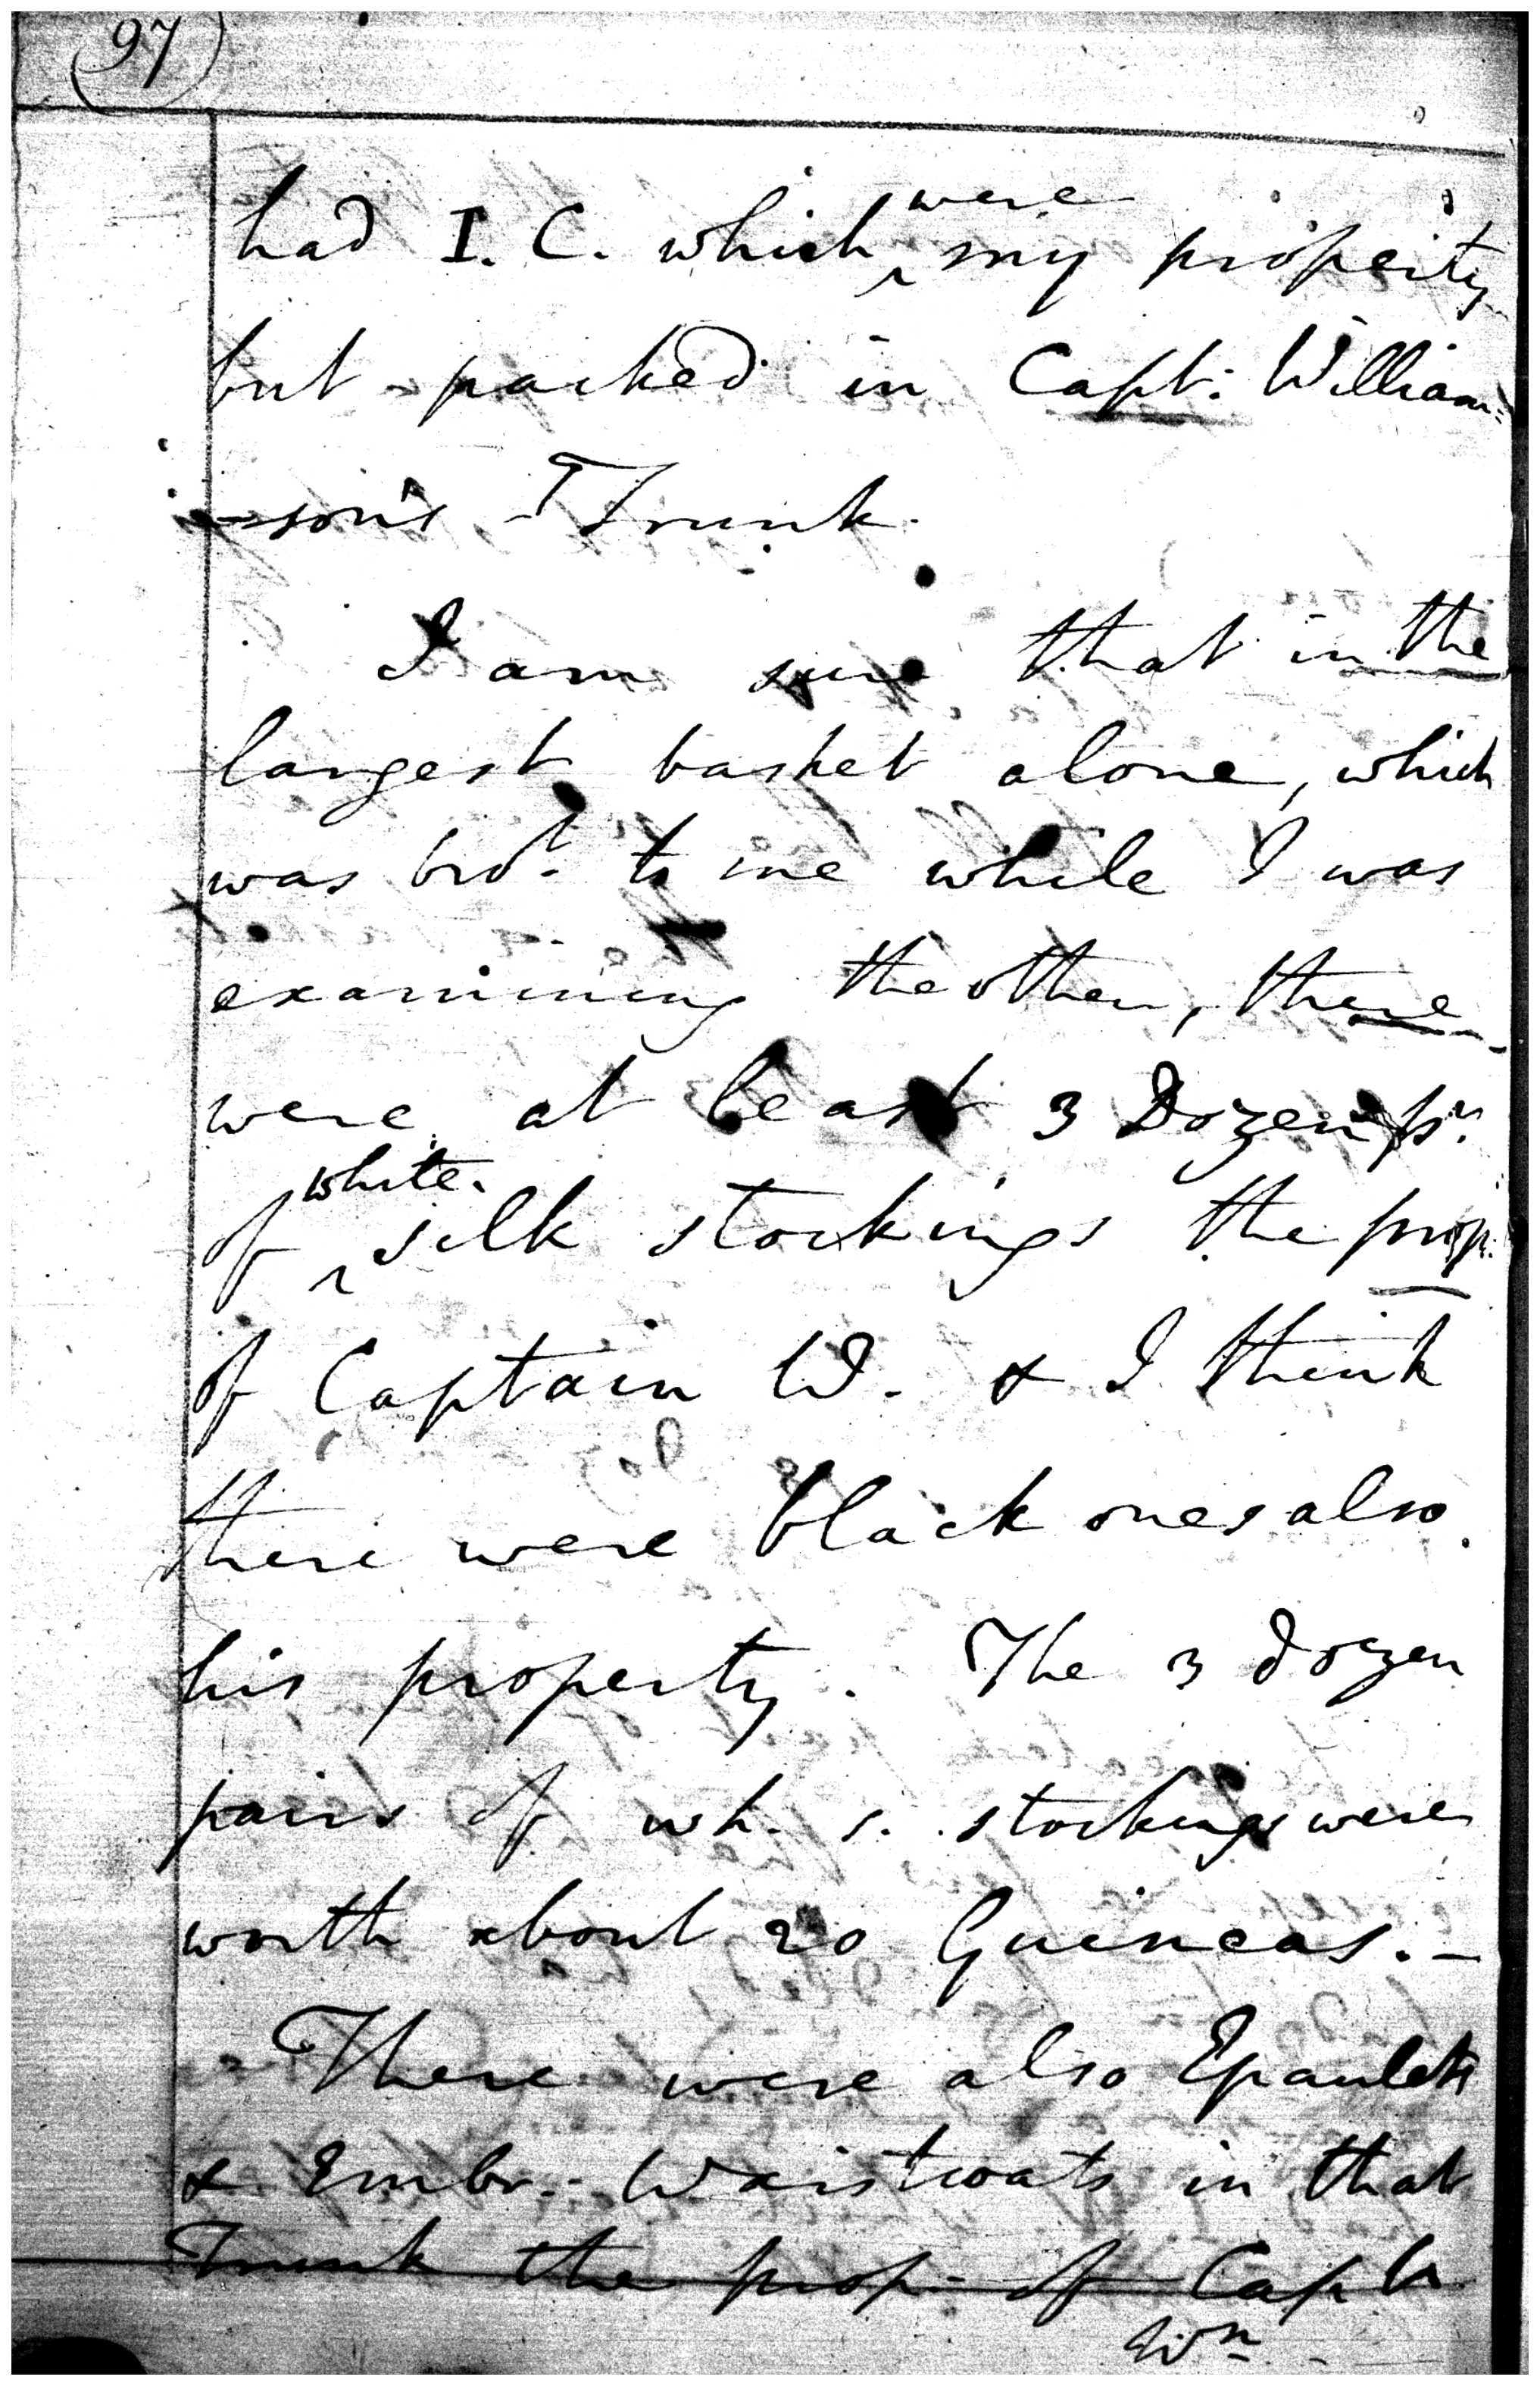 97
had I. C. which were my property
but packed in Capt: William=
-son's Trunk.
I am sure that in the
largest basket alone, which
was brot. to me while I was
examining the other, there
were at least 3 Dozen pr.
of white silk stockings the prop.
of Captain W. & I think
there were black ones also
his property. The 3 dozen
pairs of wh. s. stockings were
worth about 20 Guineas.-
There were also Epaulets
& Embr. Waistcoats in that
Trunk the prop. of Capt
Wn